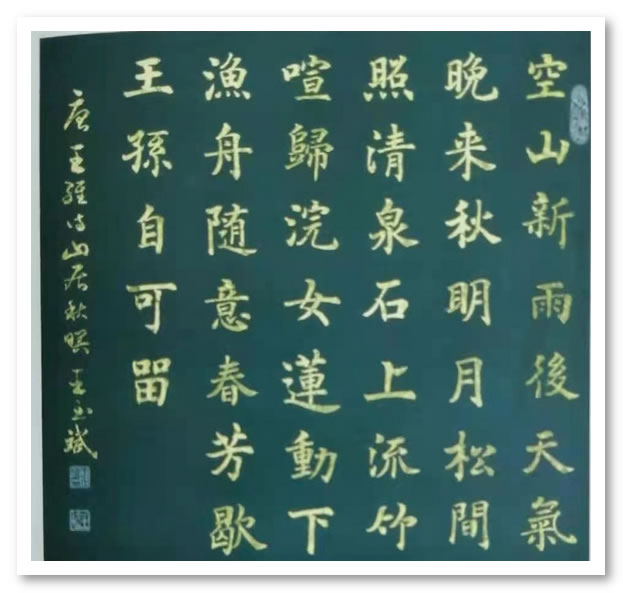 空山新雨後天氣
晚来秋明月松間
照清泉石上流竹
喧歸浣女蓮動下
漁舟随意春芳歇
王孫自可留
唐王維诗山居秋暝王玉斌